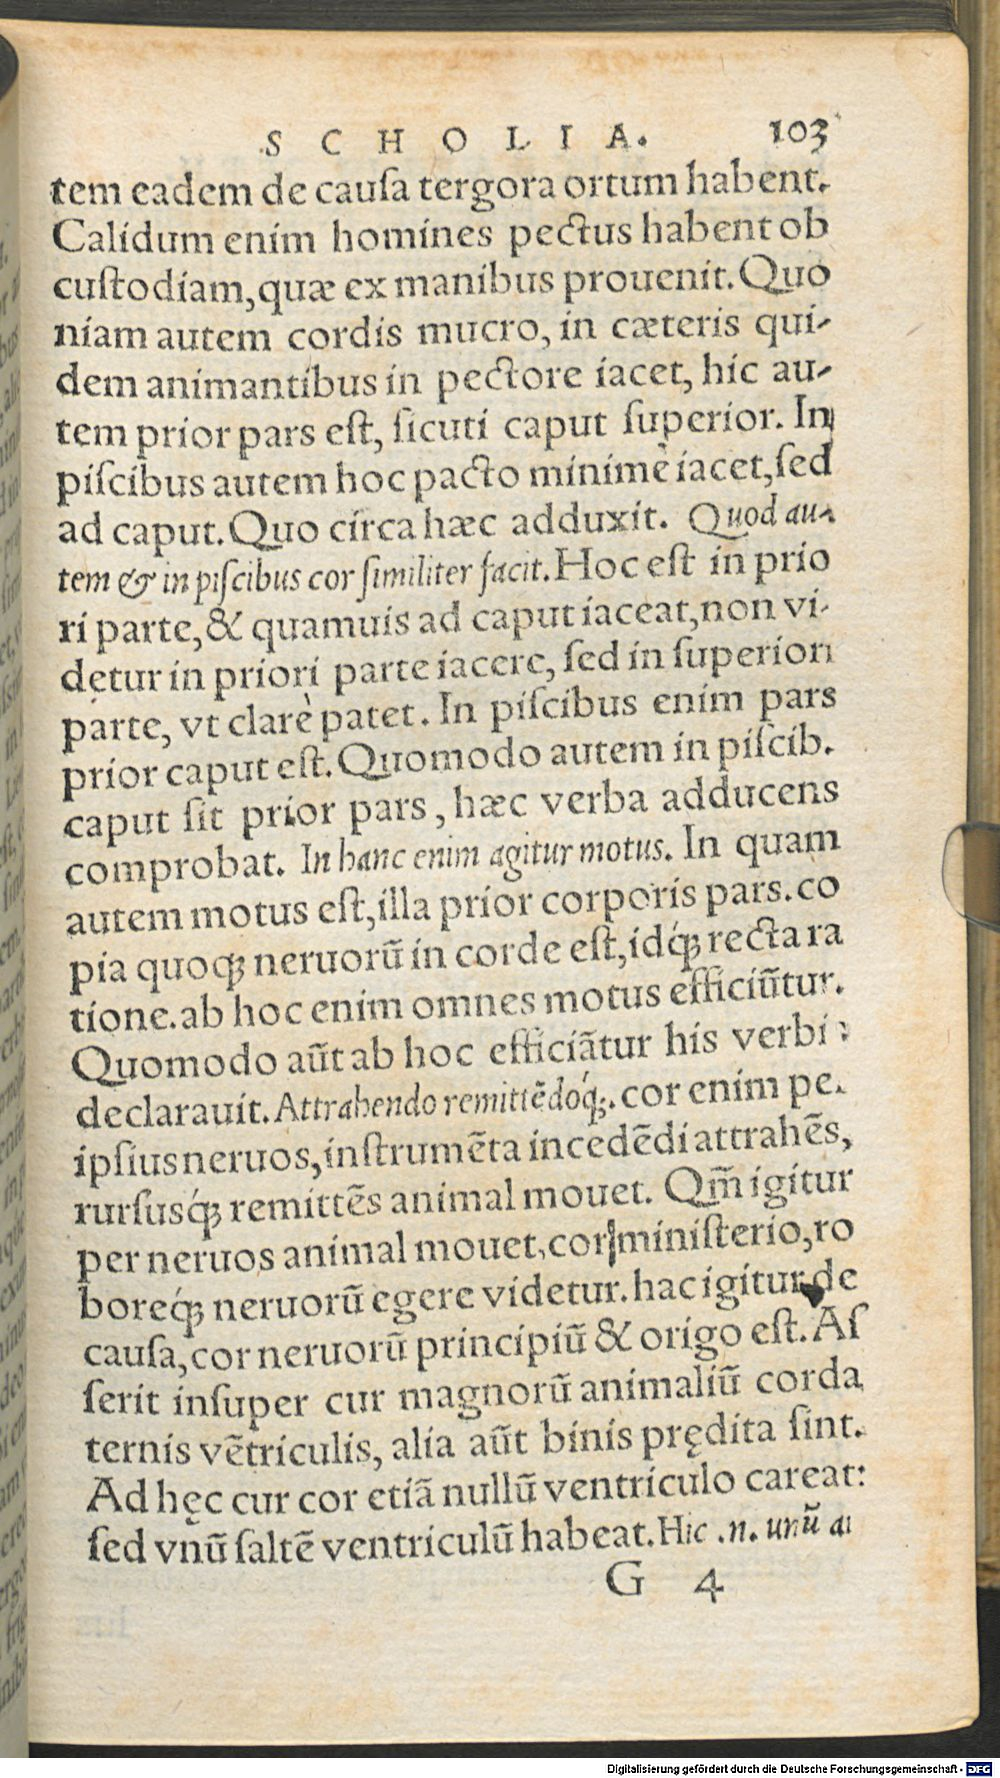 S C H O L I A. 103
tem eadem de cauſa tergora ortum habent.
Calidum enim homines pectus habent ob
cuſtodiam, quæ ex manibus prouenit. Quo
niam autem cordis mucro, in cæteris qui-
dem animantibus in pectore iacet, hic au-
tem prior pars eſt, ſicuti caput ſuperior. In
piſcibus autem hoc pacto minimè iacet, ſed
ad caput. Quo circa hæc adduxit. Quod au-
tem & in piſcibus cor ſimiliter facit. Hoc eſt in prio
ri parte, & quamuis ad caput iaceat, non vi-
detur in priori parte iacere, ſed in ſuperiori
parte, vt clarè patet. In piſcibus enim pars
prior caput eſt. Quomodo autem in piſcib.
caput ſit prior pars, hæc verba adducens
comprobat. In hanc enim agitur motus. In quam
autem motus eſt, illa prior corporis pars. co
pia quoqꝫ neruorũ in corde eſt, idq́ꝫ recta ra
tione. ab hoc enim omnes motus efficiũtur.
Quomodo aũt ab hoc efficiãtur his verbi
declarauit. Attrahendo remittẽdoq́ꝫ. cor enim pe.
ipſius neruos, inſtrumẽta incedẽdi attrahẽs,
rurſusq́ꝫ remittẽs animal mouet. Qm̃ igitur
per neruos animal mouet, cor miniſterio, ro
boreq́ꝫ neruorũ egere videtur. hac igitur de
cauſa, cor neruorũ principiũ & origo eſt. Aſ
ſerit inſuper cur magnorũ animaliũ corda
ternis vẽtriculis, alia aũt binis prędita ſint.
Ad hęc cur cor etiã nullũ ventriculo careat:
ſed vnũ ſaltẽ ventriculũ habeat. Hic .n. unũ
G 4
Digitalisierung gefördert durch die Deutsche Forschungsgemeinschaft - DFG